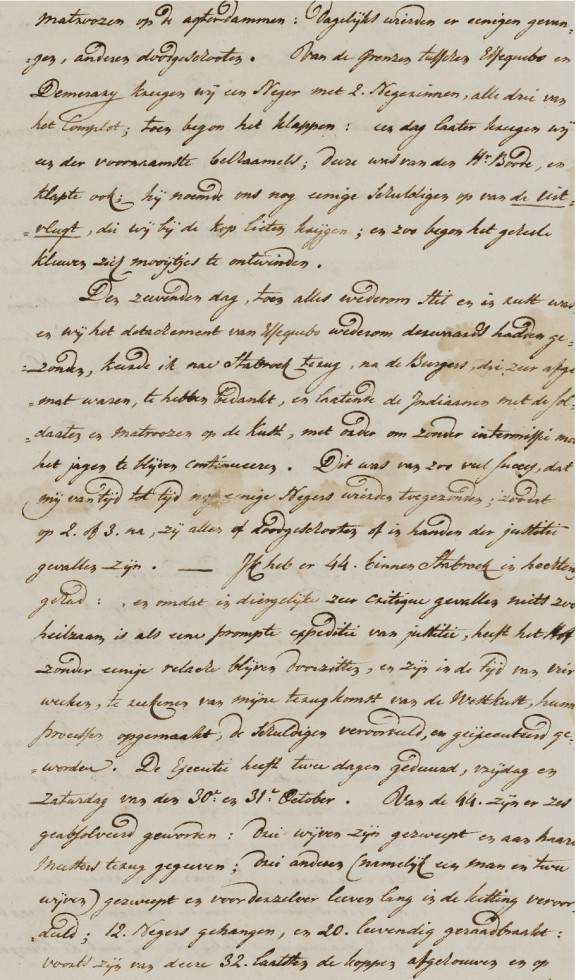 matroozen op de agterdammen: Dagelijks wierden er eenigen gevan-
-gen, anderen doodgeschooten. Van de Grenzen tusschen Essequebo en
Demerary kreegen wij een Neger met 2. Negerinnen, alle drie van
het Complot; toen begon het klappen: een dag laater kreegen wij
een der voornaamste belhaamels; deeze was van den Hr. Boode, en
klapte ook; hij noemde ons nog eenige schuldigen op van de Uit-
-vlugt, die wij bij de kop lieten krijgen; en zoo begon het geheele
kleuwen zich mooijtjes te ontwinden.
Den zevenden dag, toen alles wederom stil en in rust was
en wij het detachement van Essequebo wederom derwaards hadden ge-
-zonden, keerde ik nae Stabroek terug, na de Burgers, die zeer afge-
-mat waren, te hebben bedankt, en laatende de Indiaanen met de Sol-
-daaten en matroozen op de Kust, met order om zonder intermissie
het jagen te blijven continueeren. Dit was van zoo veel succes, dat
mij van tijd tot tijd nog eenige Negers wierden toegezonden; zoodat
op 2. of 3. na, zij allen of doodgeschooten of in handen der justitie
gevallen zijn. — Ik heb er 44. binnen Stabroek in hechtenis
gehad: en omdat in diergelijke zeer critique gevallen niets zoo
heilzaam is als eene prompte expeditie van justitie, heeft het Hoff
zonder eenige relache blijven doorzitten, en zijn in de tijd van vier
weeken, te reekenen van mijne terugkomst van de Westkust, hunne
processen opgemaakt, de schuldigen veroordeeld, en geëxecuteerd ge-
-worden. De Executie heeft twee dagen geduurd, vrijdag en
Zaturdag van den 30e. en 31e. October. Van de 44. zijn er zes
geabsolveerd geworden: drie wijven zijn gezweept en aan haare
Meesters terug gegeven; drie anderen (namelijk een man en twee
wijven) gezweept en voor derzelver leeven lang in de ketting veroor-
-deeld; 12. Negers gehangen, en 20. leevendig geraadbraakt:
voorts zijn van deeze 32. laatsten de koppen afgehouwen en op